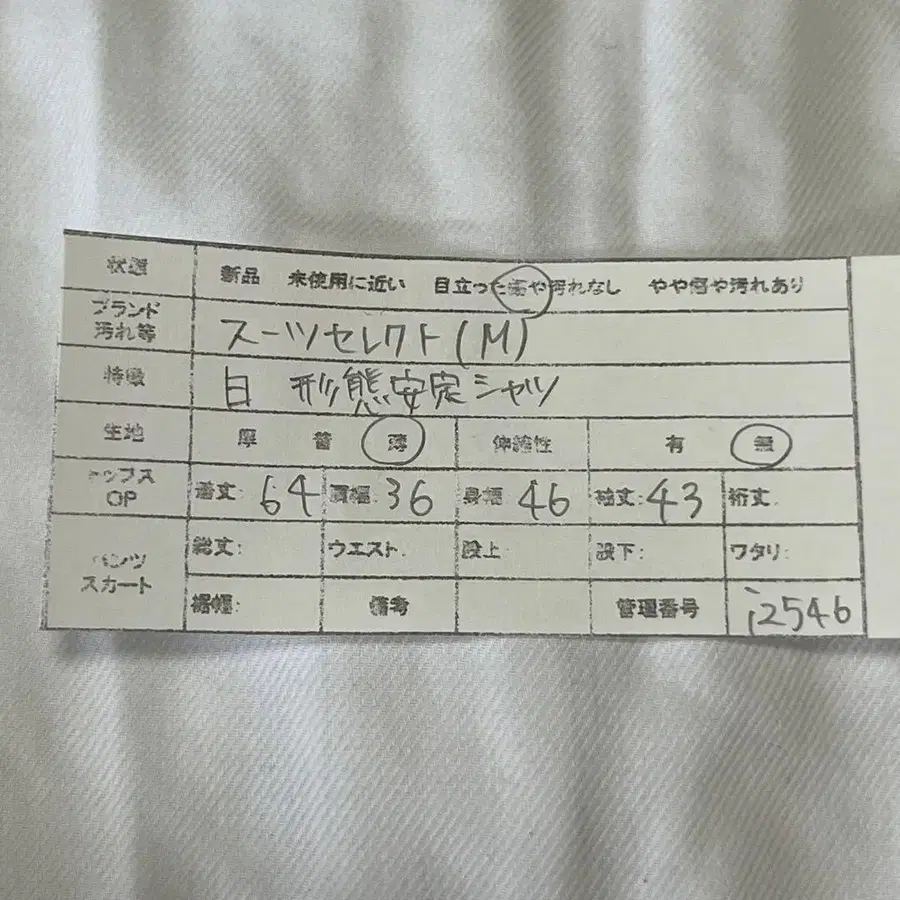 状態 新品 未使用に近い 目立った傷や汚れなし やや傷や汚れあり
ブランド
汚れ等 スーツセレクト(M)
特徴 白 形態安定シャツ
生地 厚 普 薄 伸縮性 有 無
トップス
OP 着丈: 64 肩幅: 36 身幅: 46 袖丈: 43 裄丈:
パンツ
スカート 総丈: ウエスト: 股上: 股下: ワタリ:
裾幅: 備考 管理番号 i2546